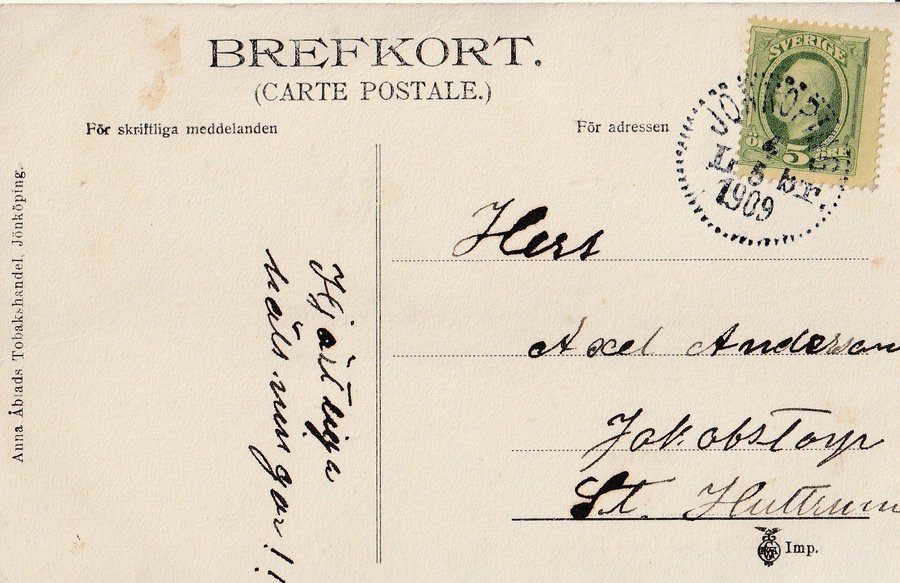 BREFKORT.
(CARTE POSTALE.)
För skriftliga meddelanden
För adressen
SVERIGE
5
ÖRE
JÖNKÖPING
1909
Anna Åblads Tobakshandel, Jönköping.
Hjärtliga
hälsningar!!
Herr
Axel Anderson
Jakobstorp
St.
Imp.